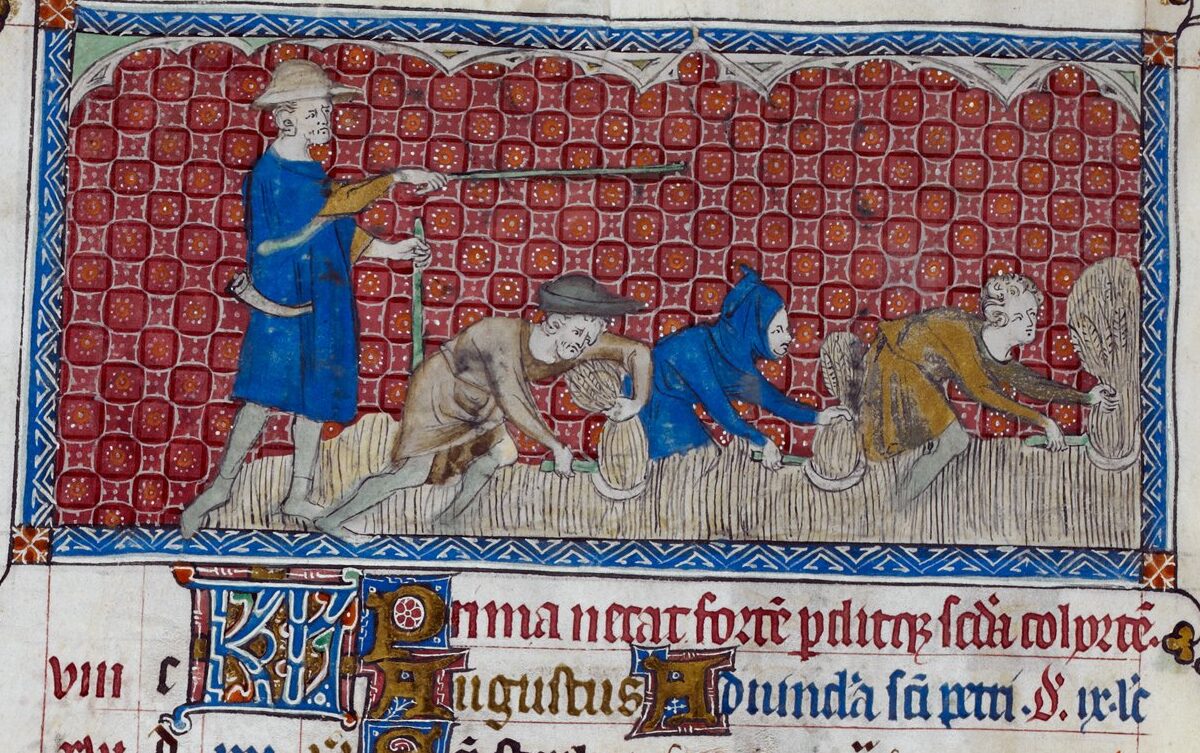 Prima necat fortē p̄ditqꝫ scd̄a cohortē.
viii c KL Augustus Aduincl̄a sc̄i petri. D. ix. lc̄
d